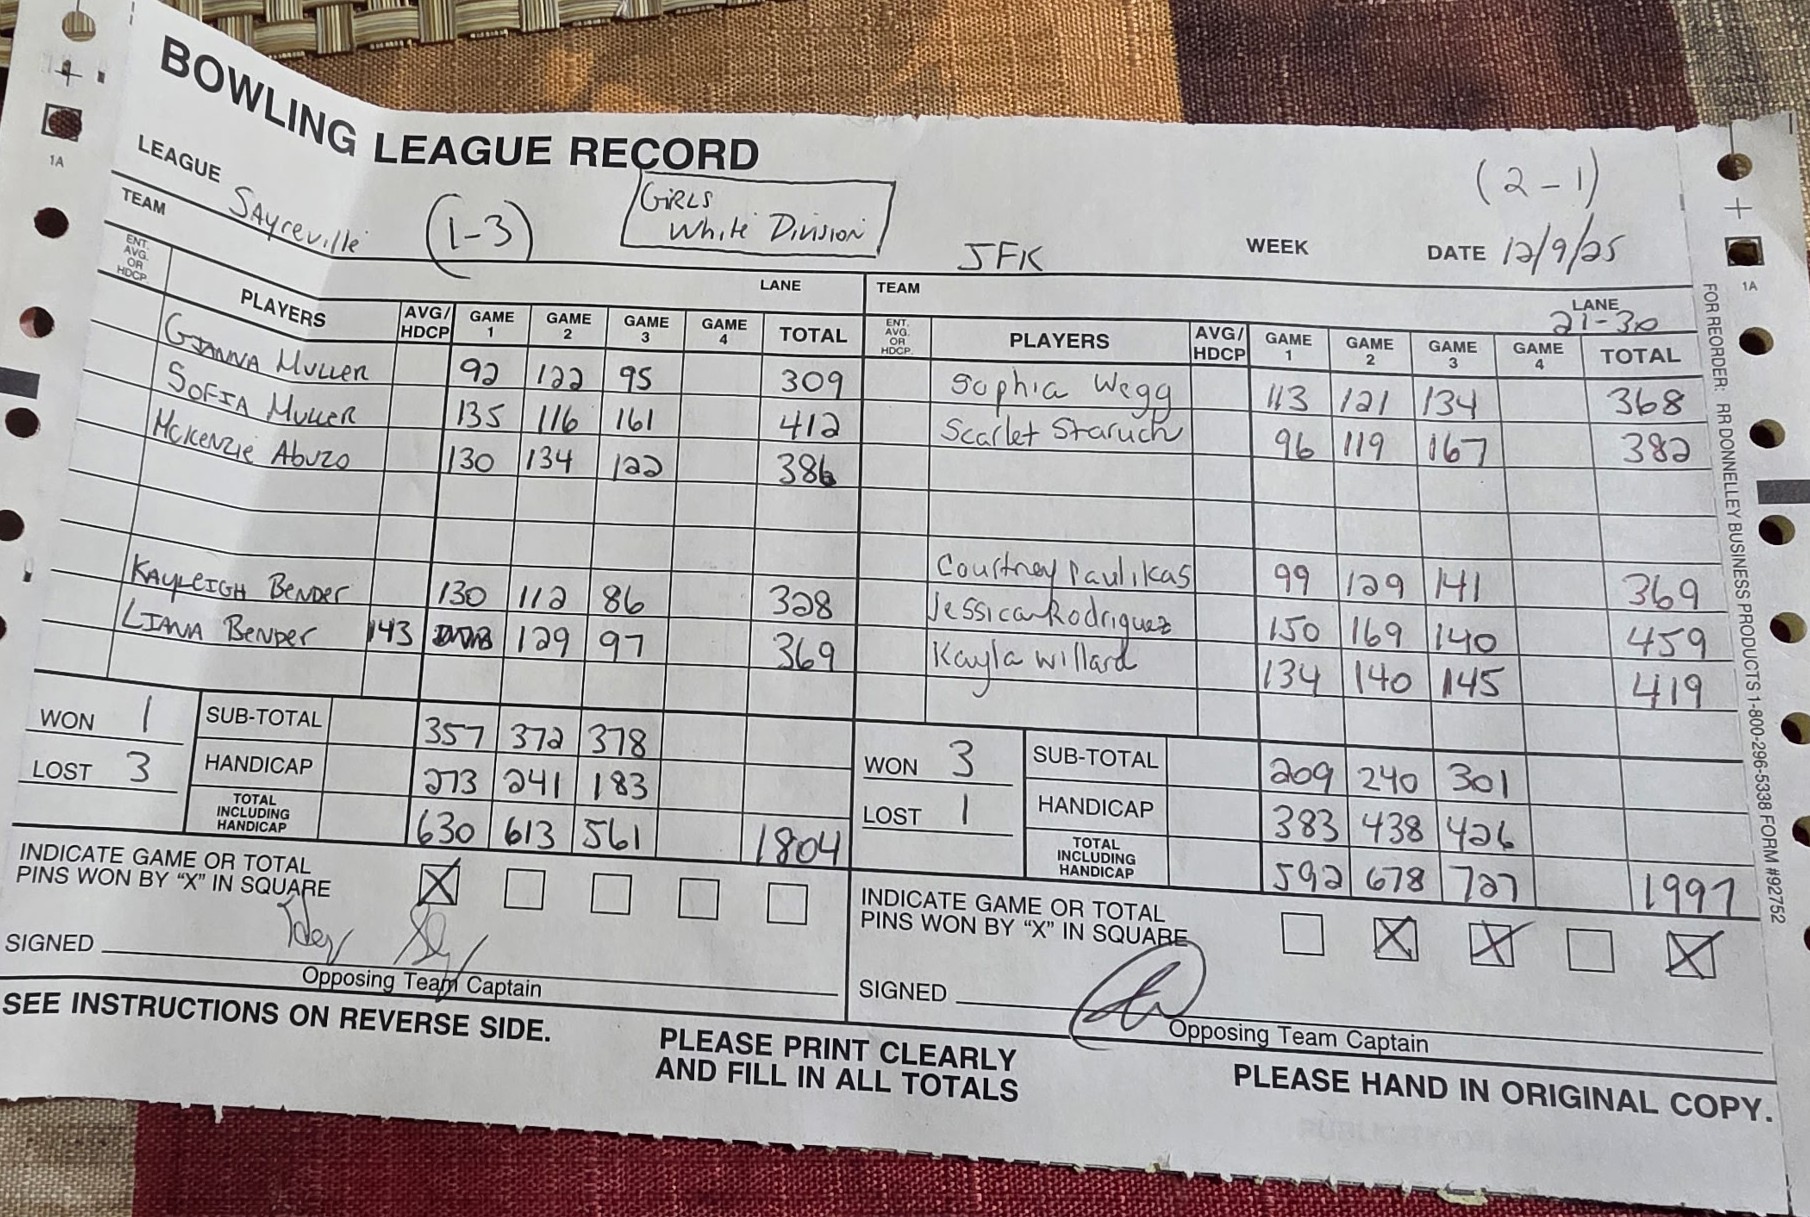 BOWLING LEAGUE RECORD
(2-1)
LEAGUE
GiRLS
White Division
TEAM Sayreville (1-3)
JFK
WEEK
DATE 12/9/25
LANE
TEAM
LANE 21-30
ENT. AVG. OR HDCP. PLAYERS AVG/HDCP GAME 1 GAME 2 GAME 3 GAME 4 TOTAL
Gianna Muller 92 122 95 309
Sofia Muller 135 116 161 412
Mckenzie Abuzo 130 134 122 386
Kayleigh Bender 130 112 86 328
Liana Bender 143 129 97 369
WON 1 SUB-TOTAL 357 372 378
LOST 3 HANDICAP 273 241 183
TOTAL INCLUDING HANDICAP 630 613 561 1804
INDICATE GAME OR TOTAL
PINS WON BY "X" IN SQUARE X
SIGNED
Opposing Team Captain
ENT. AVG. OR HDCP. PLAYERS AVG/HDCP GAME 1 GAME 2 GAME 3 GAME 4 TOTAL
Sophia Wegg 113 121 134 368
Scarlet Staruch 96 119 167 382
Courtney Paulikas 99 129 141 369
Jessica Rodriguez 150 169 140 459
Kayla Willard 134 140 145 419
WON 3 SUB-TOTAL 209 240 301
LOST 1 HANDICAP 383 438 426
TOTAL INCLUDING HANDICAP 592 678 727 1997
INDICATE GAME OR TOTAL
PINS WON BY "X" IN SQUARE X X X
SIGNED
Opposing Team Captain
SEE INSTRUCTIONS ON REVERSE SIDE.
PLEASE PRINT CLEARLY
AND FILL IN ALL TOTALS
PLEASE HAND IN ORIGINAL COPY.
1A
1A
FOR REORDER: RR DONNELLEY BUSINESS PRODUCTS 1-800-296-5338 FORM #92752